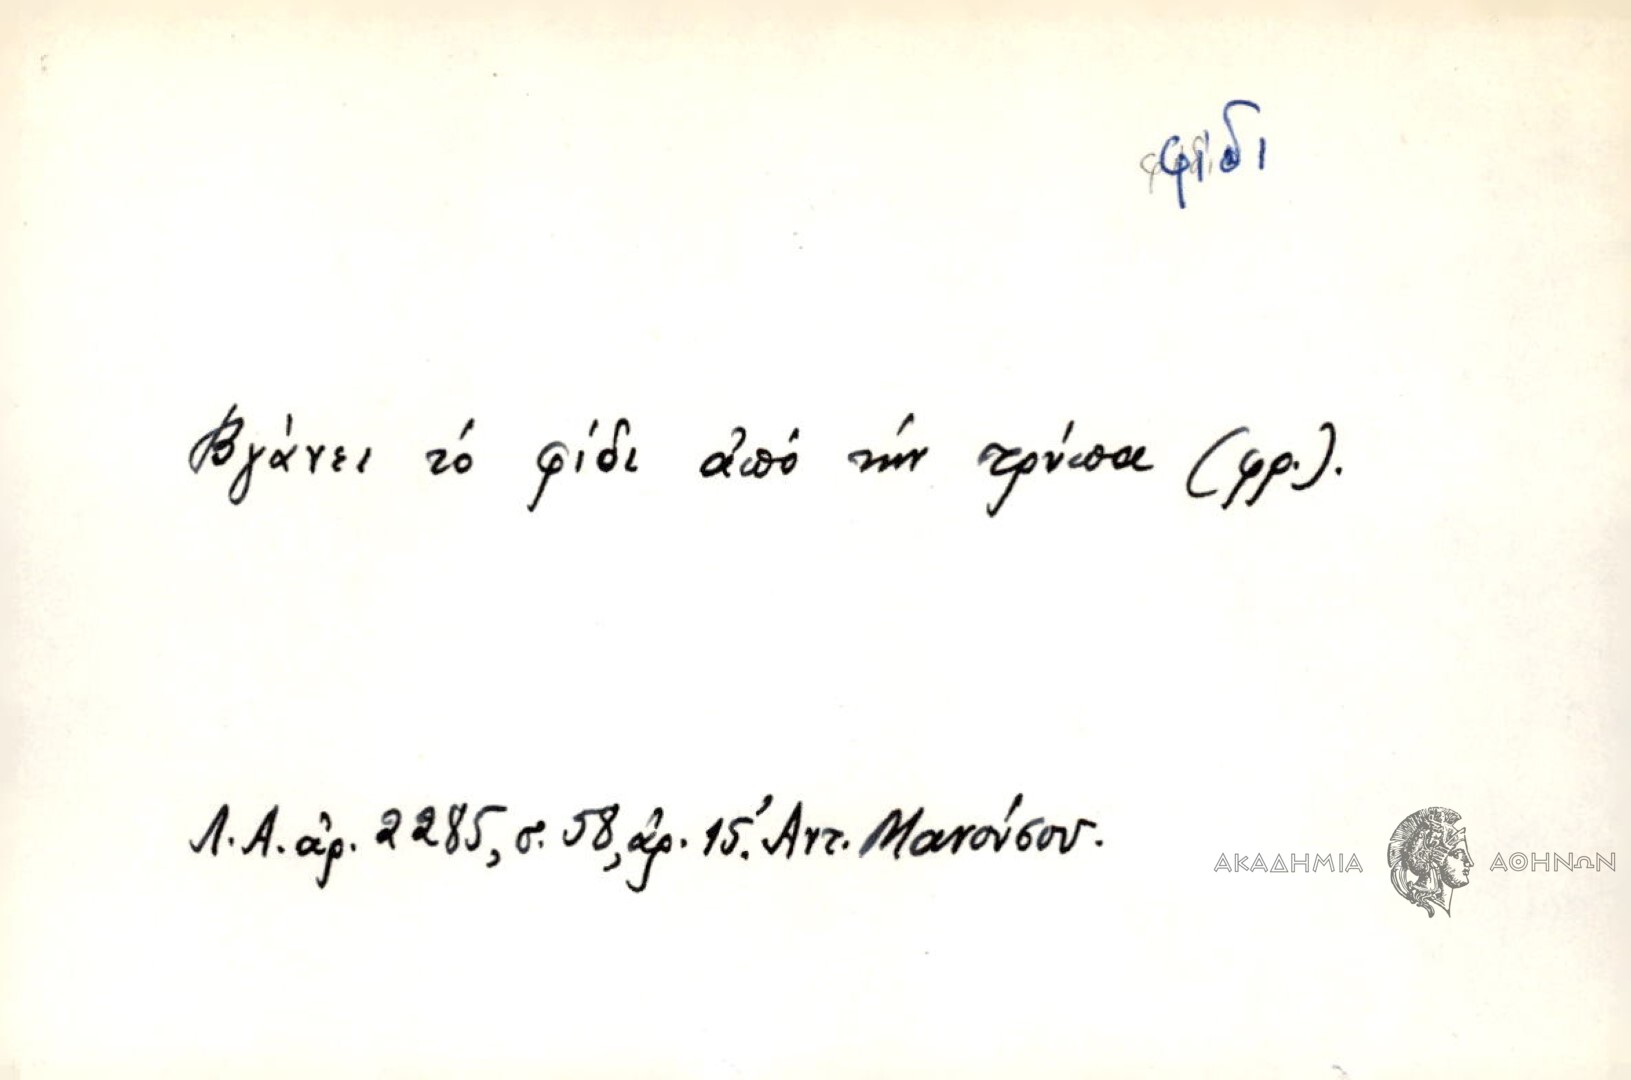 φίδι
Βγάνει τό φίδι ἀπό τήν τρύπα (φρ.).
Λ.Α. ἀρ. 2285, σ. 58, ἀρ. 15. Ἀντ. Μανούσου.
ΑΚΑΔΗΜΙΑ ΑΘΗΝΩΝ